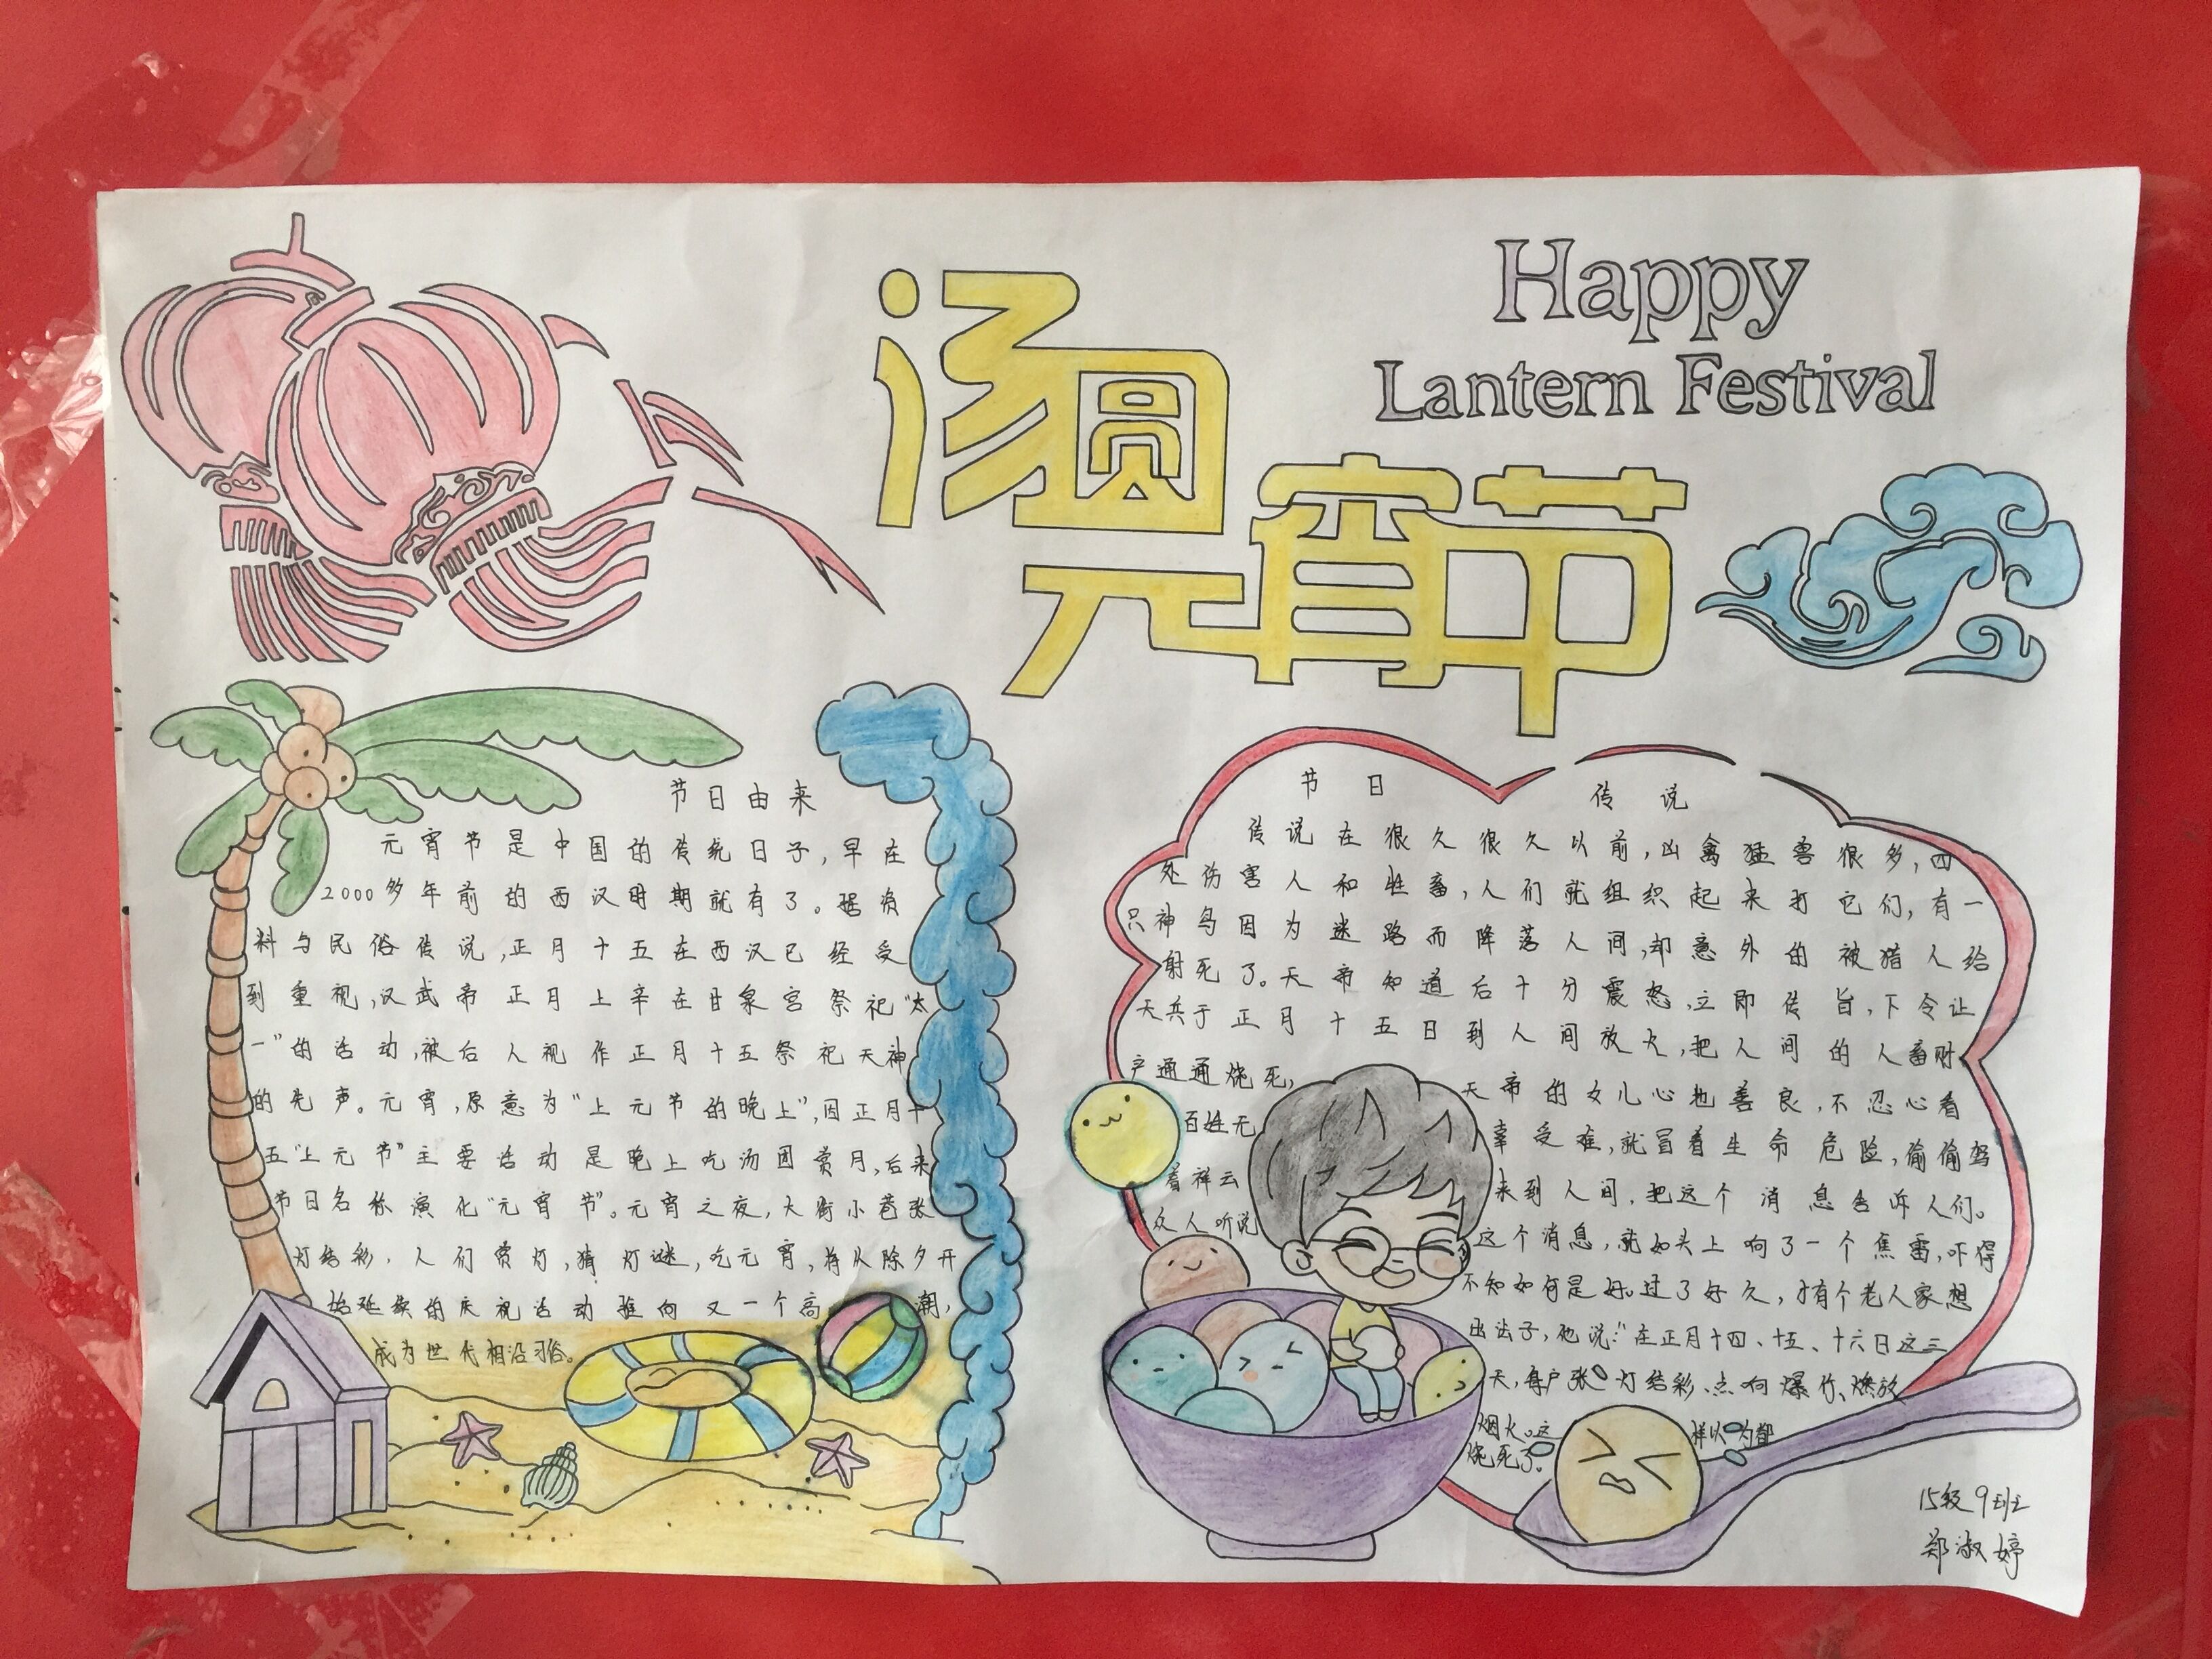 Happy
Lantern Festival
汤圆
元宵节
节日由来
元宵节是中国的传统日子,早在
2000多年前的西汉时期就有了。据资
料与民俗传说,正月十五在西汉已经受
到重视,汉武帝正月上辛在甘泉宫祭祀“太
一”的活动,被后人视作正月十五祭祀天神
的先声。元宵,原意为“上元节的晚上”,因正月十
五“上元节”主要活动是晚上吃汤团赏月,后来
节日名称演化“元宵节”。元宵之夜,大街小巷张
灯结彩,人们赏灯,猜灯谜,吃元宵,将从除夕开
始延续的庆祝活动推向又一个高潮,
成为世代相沿习俗。
节日传说
传说在很久很久以前,凶禽猛兽很多,四
处伤害人和牲畜,人们就组织起来打它们,有一
只神鸟因为迷路而降落人间,却意外的被猎人给
射死了。天帝知道后十分震怒,立即传旨,下令让
天兵于正月十五日到人间放火,把人间的人畜财
产通通烧死,天帝的女儿心地善良,不忍心看
百姓无辜受难,就冒着生命危险,偷偷驾
着祥云来到人间,把这个消息告诉人们。
众人听说这个消息,就如头上响了一个焦雷,吓得
不知如何是好。过了好久,才有个老人家想
出法子,他说:“在正月十四、十五、十六日这三
天,每户张灯结彩、点响爆竹、燃放
烟火。这样以为都
烧死了。
15级9班
郑淑婷